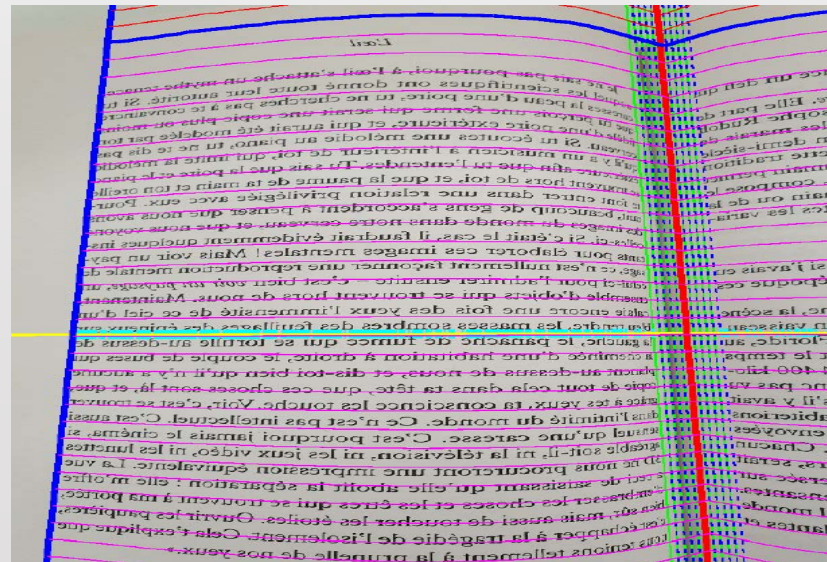 L'œil
Je ne sais pas pourquoi, à l'œil s'attache un mythe tenace
auquel les scientifiques ont donné toute leur autorité. Si tu
caresses la peau d'une poire, tu ne cherches pas à te convaincre
que tu perçois une forme qui serait une copie plus ou moins
d'une poire extérieure, et qui aurait été modelée par ton
cerveau. Si tu écoutes une mélodie au piano, tu ne te dis pas
qu'il y a un musicien à l'intérieur de toi, qui imite la mélodie
afin que tu l'entendes. Tu sais que la poire et le piano
se trouvent hors de toi, et que la paume de ta main et ton oreille
te font entrer dans une relation privilégiée avec eux. Pour-
tant, beaucoup de gens s'accordent à penser que nous avons
des images du monde dans notre cerveau, et que nous voyons
celles-ci. Si c'était le cas, il faudrait évidemment quelques ins-
tants pour élaborer ces images mentales! Mais voir un pay-
sage, ce n'est nullement façonner une reproduction mentale de
celui-ci pour l'admirer ensuite – c'est bien voir un paysage, un
ensemble d'objets qui se trouvent hors de nous. Maintenant
encore une fois des yeux l'immensité de ce ciel d'un
bleu tendre, les masses sombres des feuillages des épineux sur
la gauche, le panache de fumée qui se tortille au-dessus de
la cheminée d'une habitation à droite, le couple de buses qui
planent au-dessus de nous, et dis-toi bien qu'il n'y a aucune
copie de tout cela dans ta tête, que ces choses sont là, et que,
grâce à tes yeux, ta conscience les touche. Voir, c'est se trouver
dans l'intimité du monde. Ce n'est pas intellectuel. C'est aussi
sensuel qu'une caresse. C'est pourquoi jamais le cinéma, si
agréable soit-il, ni la télévision, ni les jeux vidéo, ni les lunettes
3D ne nous procureront une impression équivalente. La vue
a ceci de saisissant qu'elle abolit la séparation : elle m'offre
d'embrasser les choses et les êtres qui se trouvent à ma portée,
bien sûr, mais aussi de toucher les étoiles. Ouvrir les paupières,
c'est échapper à la tragédie de l'isolement. Cela t'explique que
nous tenions tellement à la prunelle de nos yeux. »